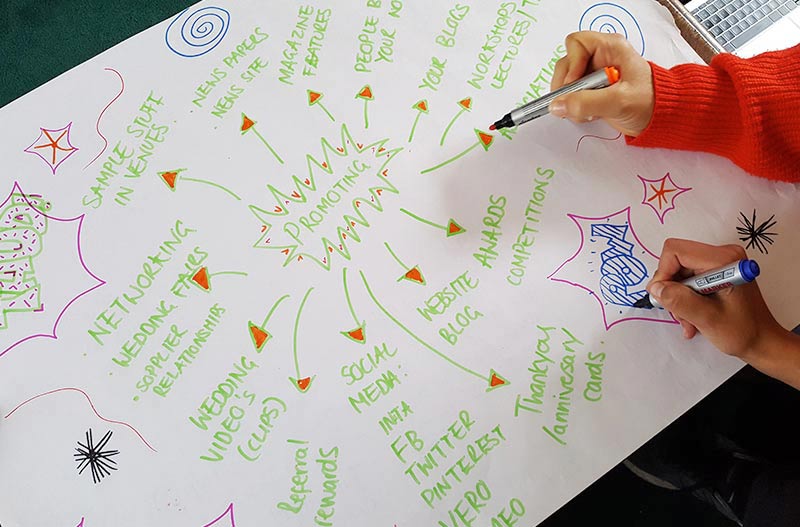 PROMOTING
SAMPLE STUFF
IN VENUES
NEWS PAPERS
NEWS SITE
MAGAZINE
FEATURES
PEOPLE
YOUR
YOUR BLOGS
WORKSHOPS
LECTURES/
AWARDS
COMPETITIONS
WEBSITE
BLOG
Thankyou
/anniversary
cards
SOCIAL
MEDIA:
INSTA
FB
TWITTER
PINTEREST
VERO
Referral
rewards
WEDDING
VIDEO'S
(CLIPS)
NETWORKING
• WEDDING FAIRS
• SOPPLIER
RELATIONSHIPS